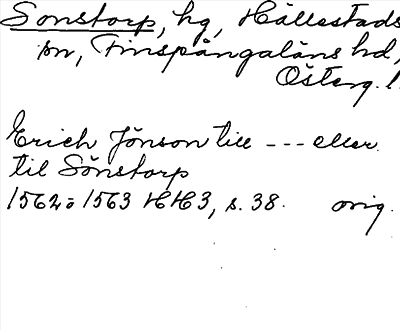 Sonstorp, hg, Hällestads
sn, Finspångaläns hd,
Österg. l.
Erich Jönson till --- eller
til Sönstorp
1562ö 1563 HH3, s. 38. orig.